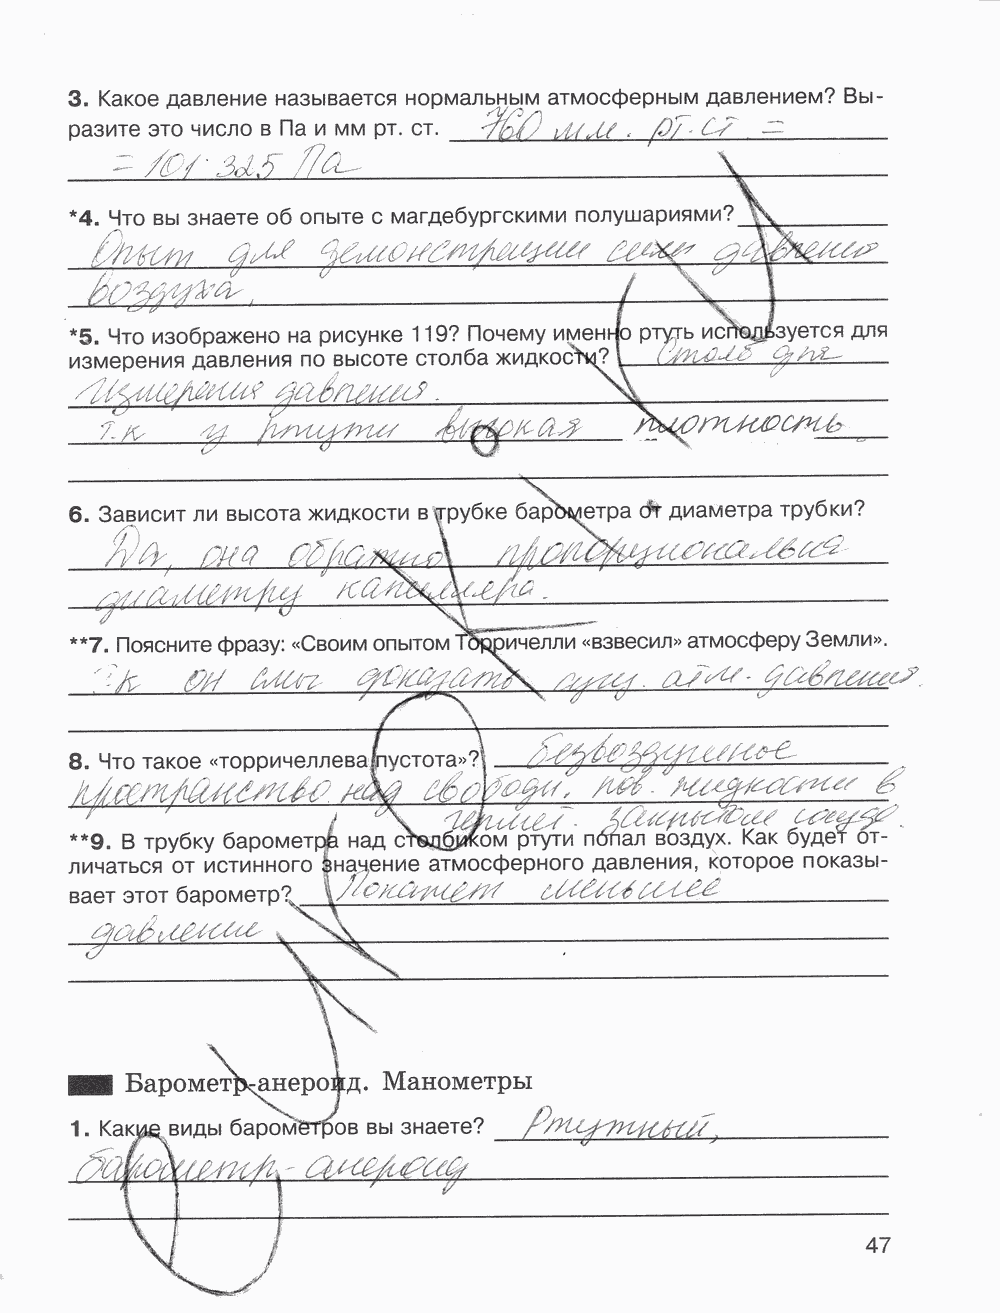 3. Какое давление называется нормальным атмосферным давлением? Вы-
разите это число в Па и мм рт. ст. 760 мм. рт. ст. =
= 101 325 Па
*4. Что вы знаете об опыте с магдебургскими полушариями?
Опыт для демонстрации силы давления
воздуха.
*5. Что изображено на рисунке 119? Почему именно ртуть используется для
измерения давления по высоте столба жидкости? Столб для
измерения давления.
т.к у ртути высокая плотность
6. Зависит ли высота жидкости в трубке барометра от диаметра трубки?
Да, она обратно пропорциональна
диаметру капилляра.
**7. Поясните фразу: «Своим опытом Торричелли «взвесил» атмосферу Земли».
Тк он смог доказать сущ. атм. давления.
8. Что такое «торричеллева пустота»? безвоздушное
пространство над свободн. пов. жидкости в
гермет. закрытом сосуде.
**9. В трубку барометра над столбиком ртути попал воздух. Как будет от-
личаться от истинного значение атмосферного давления, которое показы-
вает этот барометр? Покажет меньшее
давление
Барометр-анероид. Манометры
1. Какие виды барометров вы знаете? Ртутный,
барометр-анероид
47